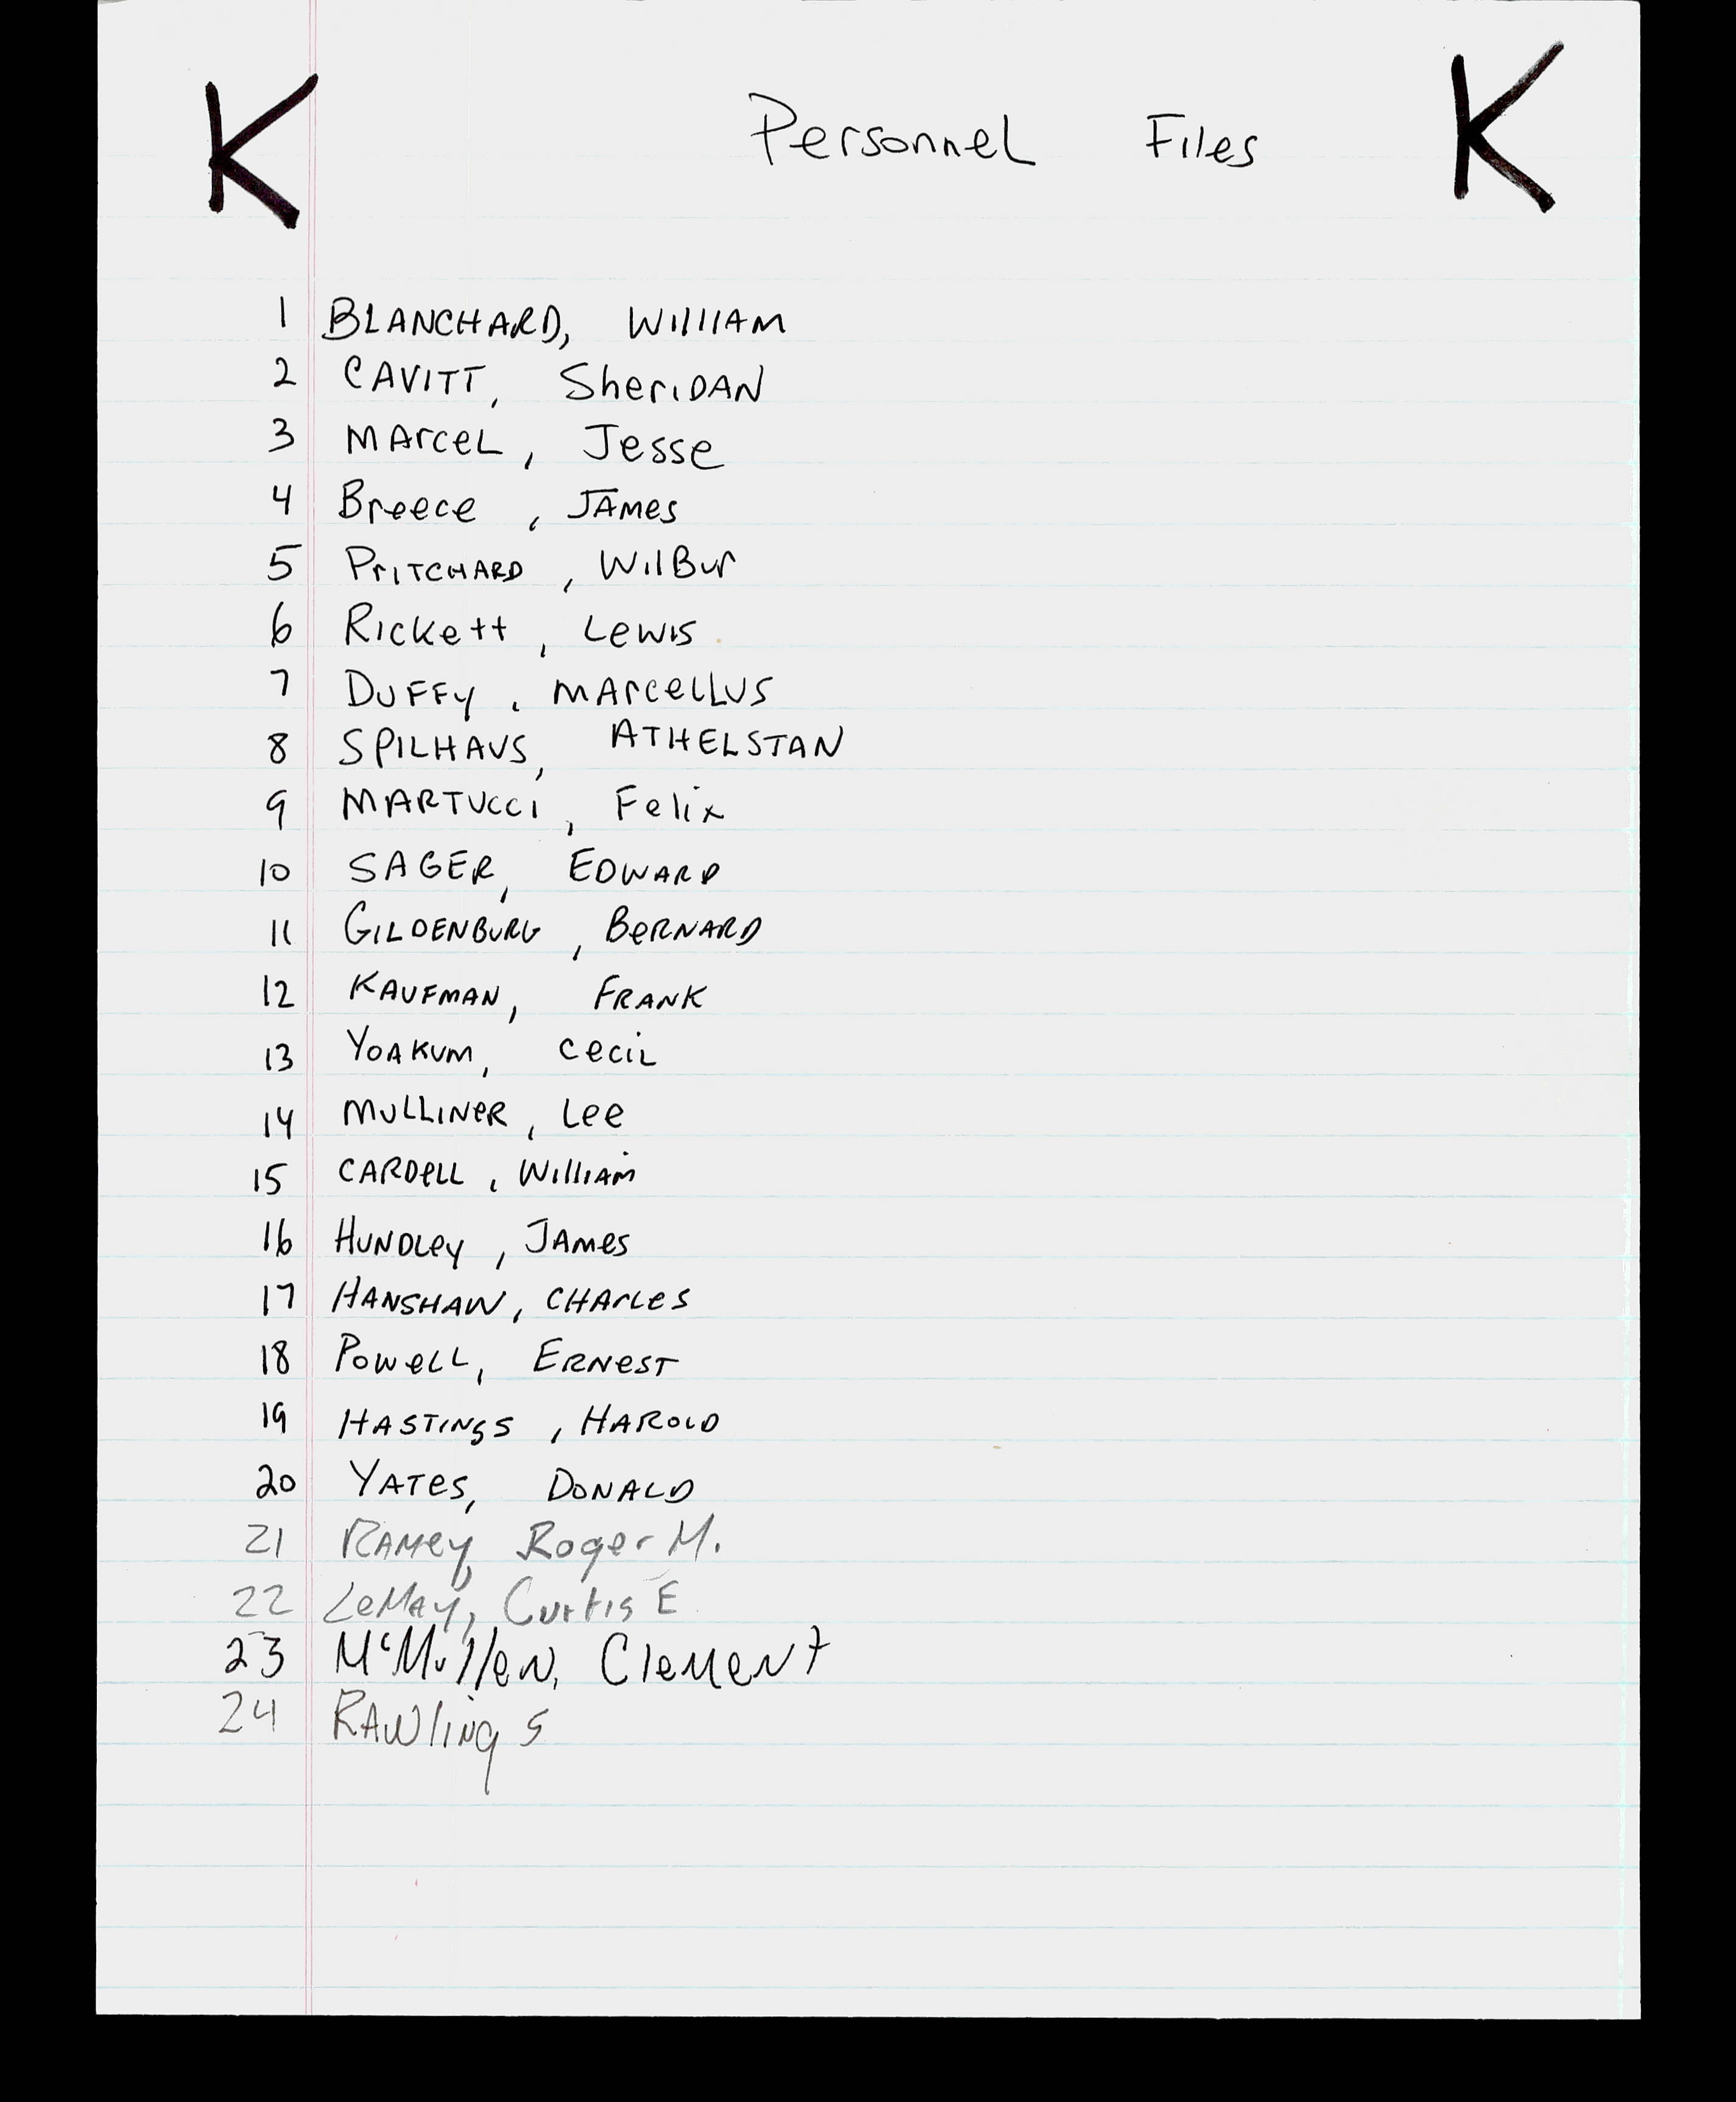 K Personnel Files K
1 BLANCHARD, WIllIAM
2 CAVITT, SherIDAN
3 MArceL, Jesse
4 Breece, JAMes
5 PrITCHARD, WilBur
6 RIckett, LewIS
7 DUFFy, MArceLLUS
8 SPILHAUS, ATHELSTAN
9 MARTUCCI, Felix
10 SAGER, EDWARD
11 GILDENBURG, BERNARD
12 KAUFMAN, FRANK
13 YOAKUM, CeCIL
14 MULLINeR, Lee
15 CARDeLL, WIllIAM
16 HUNDLey, JAMes
17 HANSHAW, CHArLeS
18 POWeLL, ERNeST
19 HASTINgS, HAROLD
20 YATeS, DONALD
21 RAMey, Roger M.
22 LeMAy, Curtis E
23 McMullen, Clement
24 RAWlings